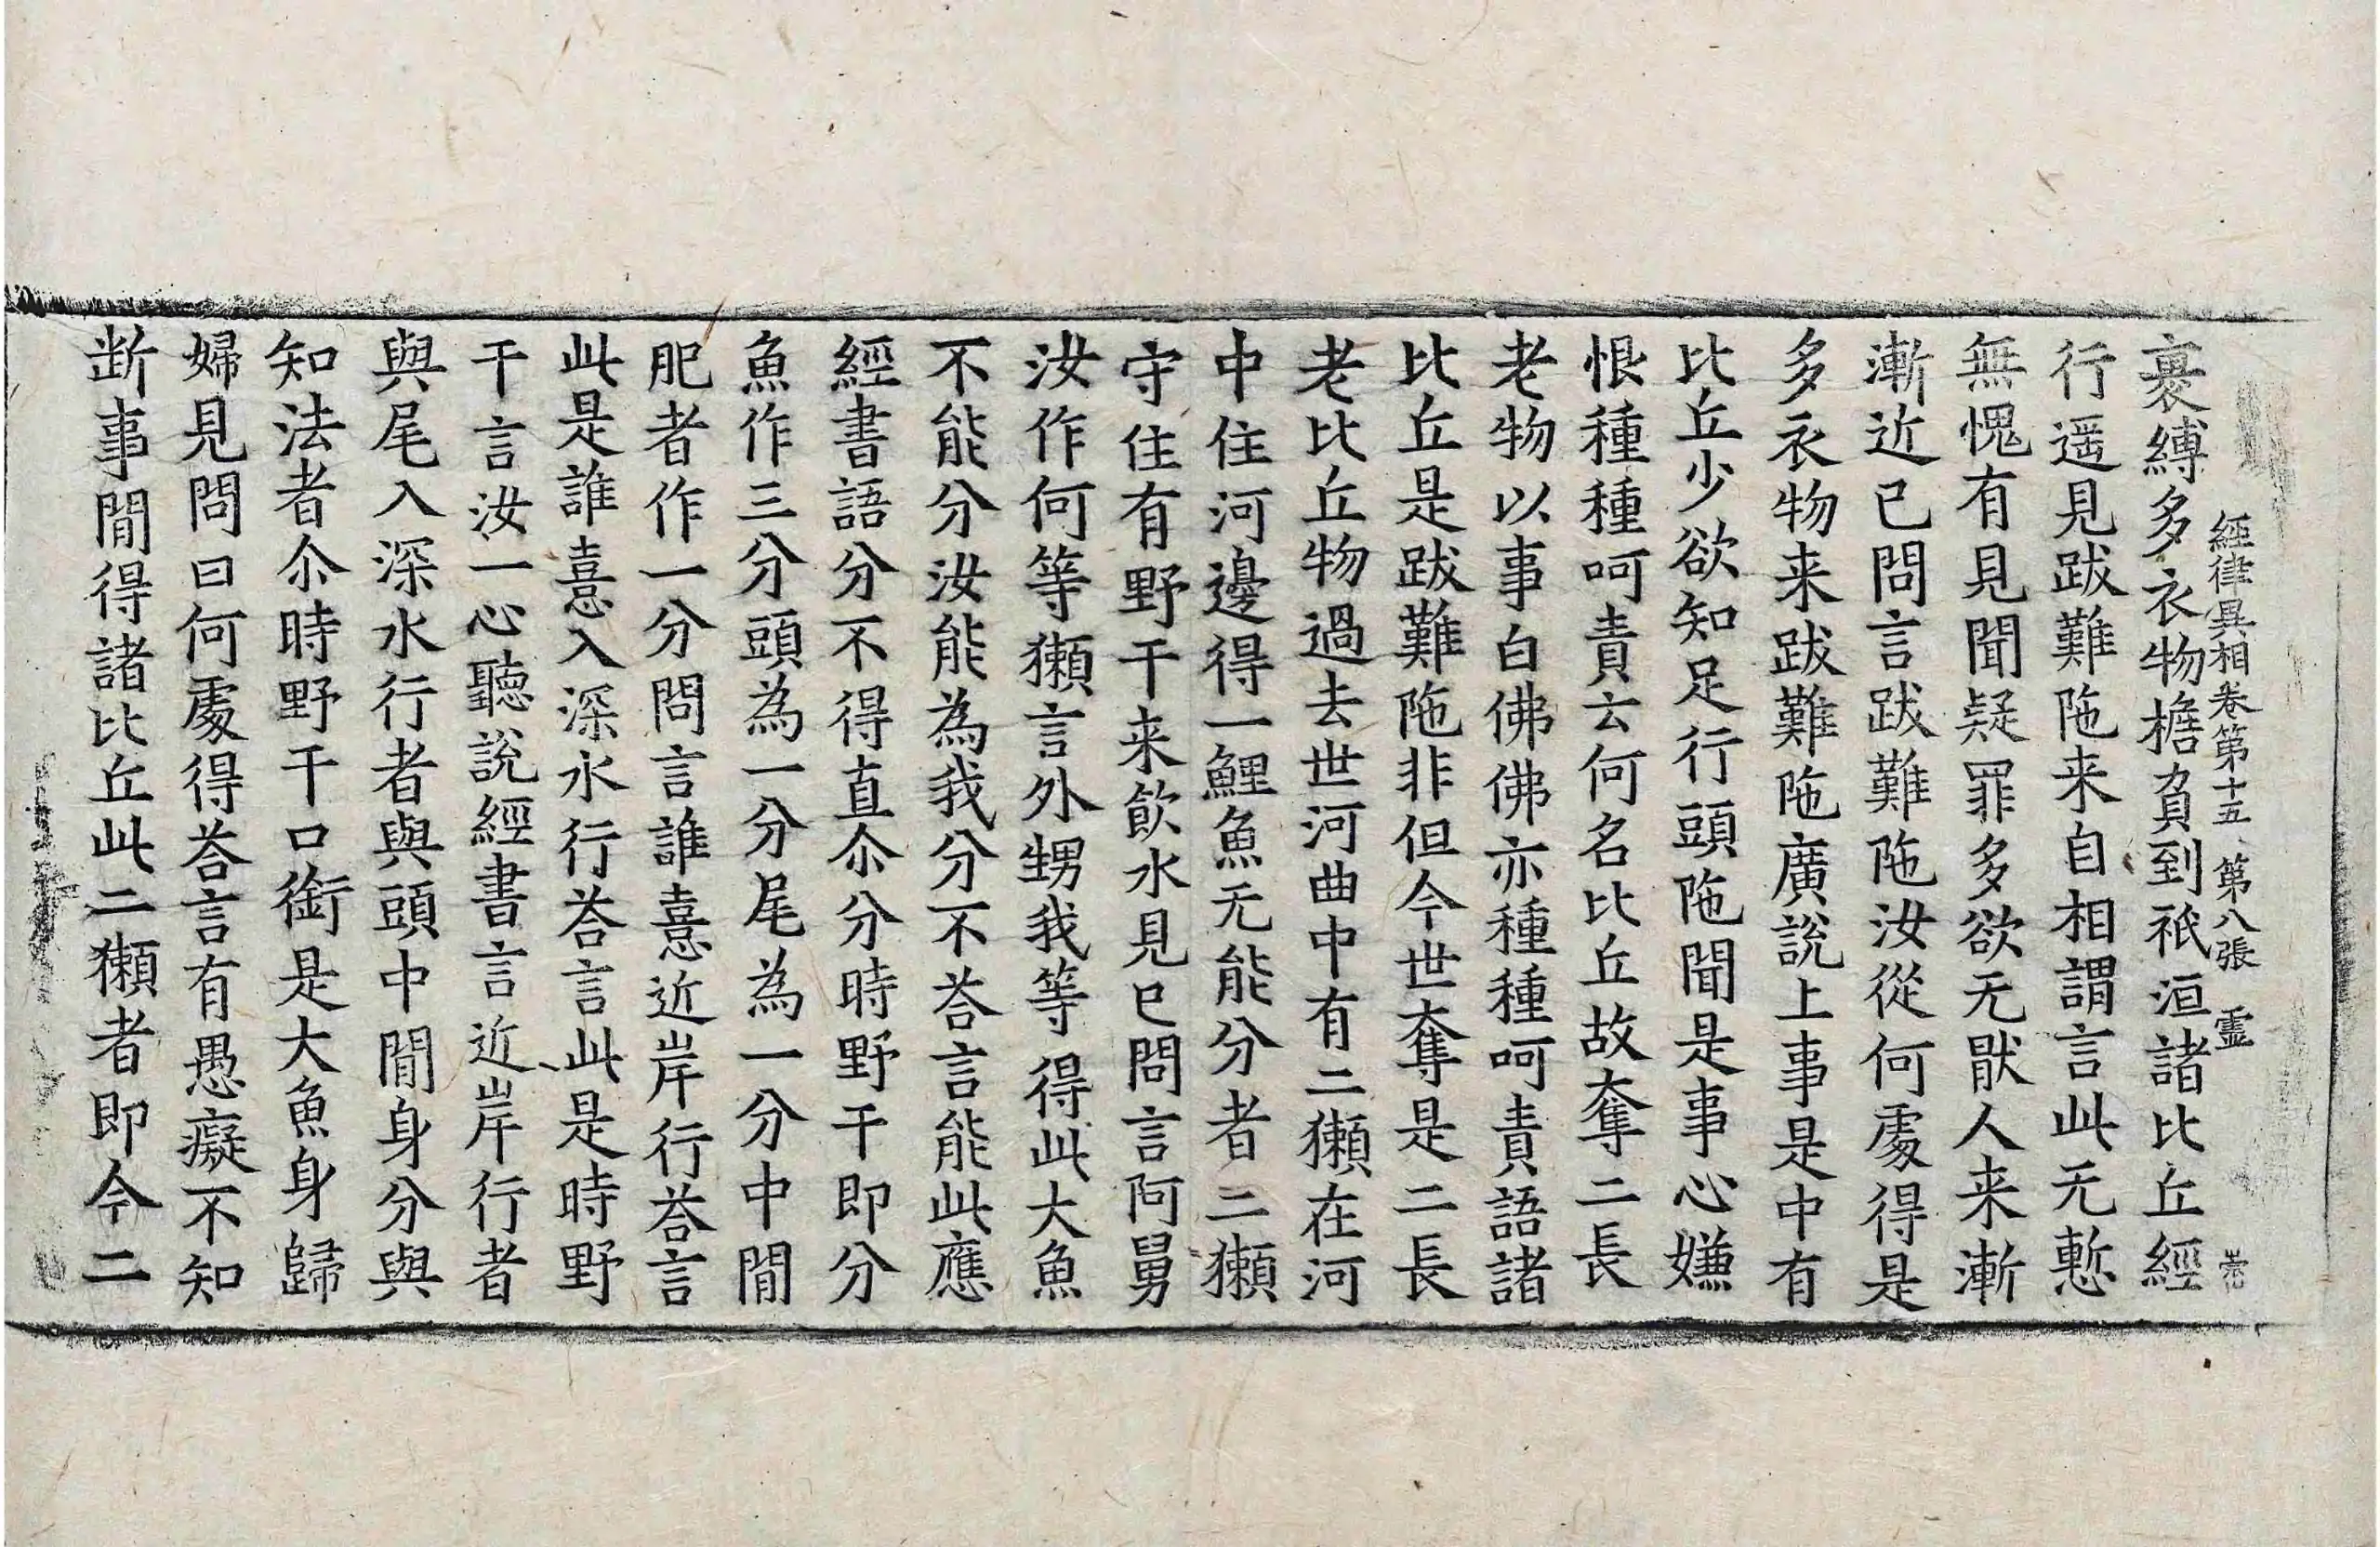 經律異相卷第十五 第八張 霊
裹縛多衣物檐負到祇洹諸比丘經
行遥見跋難陁来自相謂言此无慙
無愧有見聞疑罪多欲无猒人来漸
漸近已問言跋難陁汝從何處得是
多衣物来跋難陁廣說上事是中有
比丘少欲知足行頭陁聞是事心嫌
恨種種呵責云何名比丘故奪二長
老物以事白佛佛亦種種呵責語諸
比丘是跋難陁非但今世奪是二長
老比丘物過去世河曲中有二獺在河
中住河邊得一鯉魚无能分者二獺
守住有野干来飮水見已問言阿舅
汝作何等獺言外甥我等得此大魚
不能分汝能為我分不荅言能此應
經書語分不得直尒分時野干即分
魚作三分頭為一分尾為一分中間
肥者作一分問言誰憙近岸行荅言
此是誰憙入深水行荅言此是時野
干言汝一心聽說經書言近岸行者
與尾入深水行者與頭中間身分與
知法者尒時野干口銜是大魚身歸
婦見問曰何處得荅言有愚癡不知
断事間得諸比丘此二獺者即今二